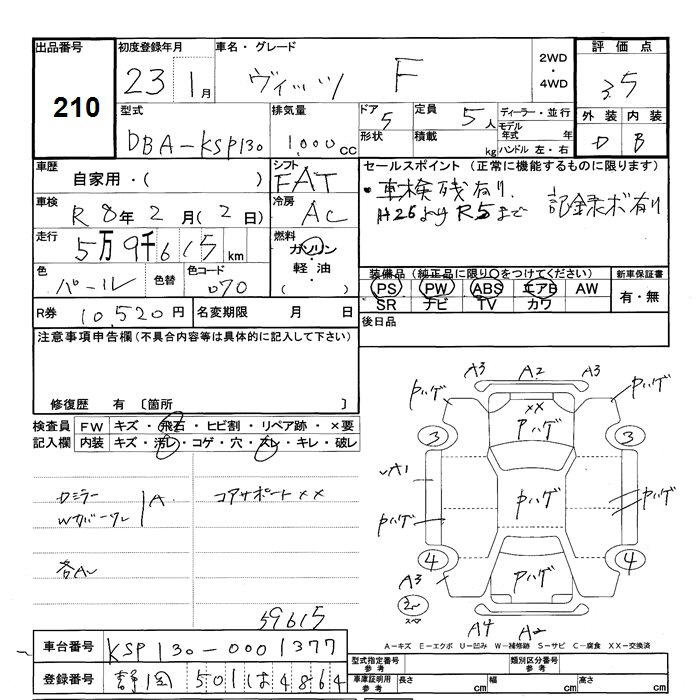 出品番号 初度登録年月 車名・グレード 2WD・4WD 評価点
210 23 1月 ヴィッツ F 3.5
型式 排気量 ドア 5 定員 5人 ディーラー・並行 外装 内装
DBA-KSP130 1,000cc 形状 積載 kg モデル年式 年 ハンドル 左・右 D B
車歴 シフト セールスポイント (正常に機能するものに限ります)
自家用・( ) FAT ・車検残有り.
車検 R8年2月(2日) 冷房 AC H26よりR5まで 記録ボ有り
走行 5万9千615km 燃料 ガソリン・軽油・( )
色 パール 色替 色コード 070
装備品 (純正品に限り○をつけてください) 新車保証書
PS PW ABS エアB AW 有・無
SR ナビ TV カワ
R券 10,520円 名変期限 月 日 後日品
注意事項申告欄(不具合内容等は具体的に記入して下さい)
修復歴 有 〔箇所 〕
検査員記入欄 FW キズ・飛石・ヒビ割・リペア跡・×要
内装 キズ・汚レ・コゲ・穴・スレ・キレ・破レ
Dミラー A コアサポート××
59615
A3 A2 A3
Pハゲ ×× Pハゲ
Pハゲ
3 3
A1
Pハゲ Pハゲ Pハゲ
4 4
A3 Pハゲ
A4 A2
A－キズ E－エクボ U－凹み W－補修跡 S－サビ C－腐食 XX－交換済
車台番号 KSP130-0001377
登録番号 静岡 501 は 4864
型式指定番号 参考 類別区分番号 参考
車庫証明用 参考 長さ cm 幅 cm 高さ cm